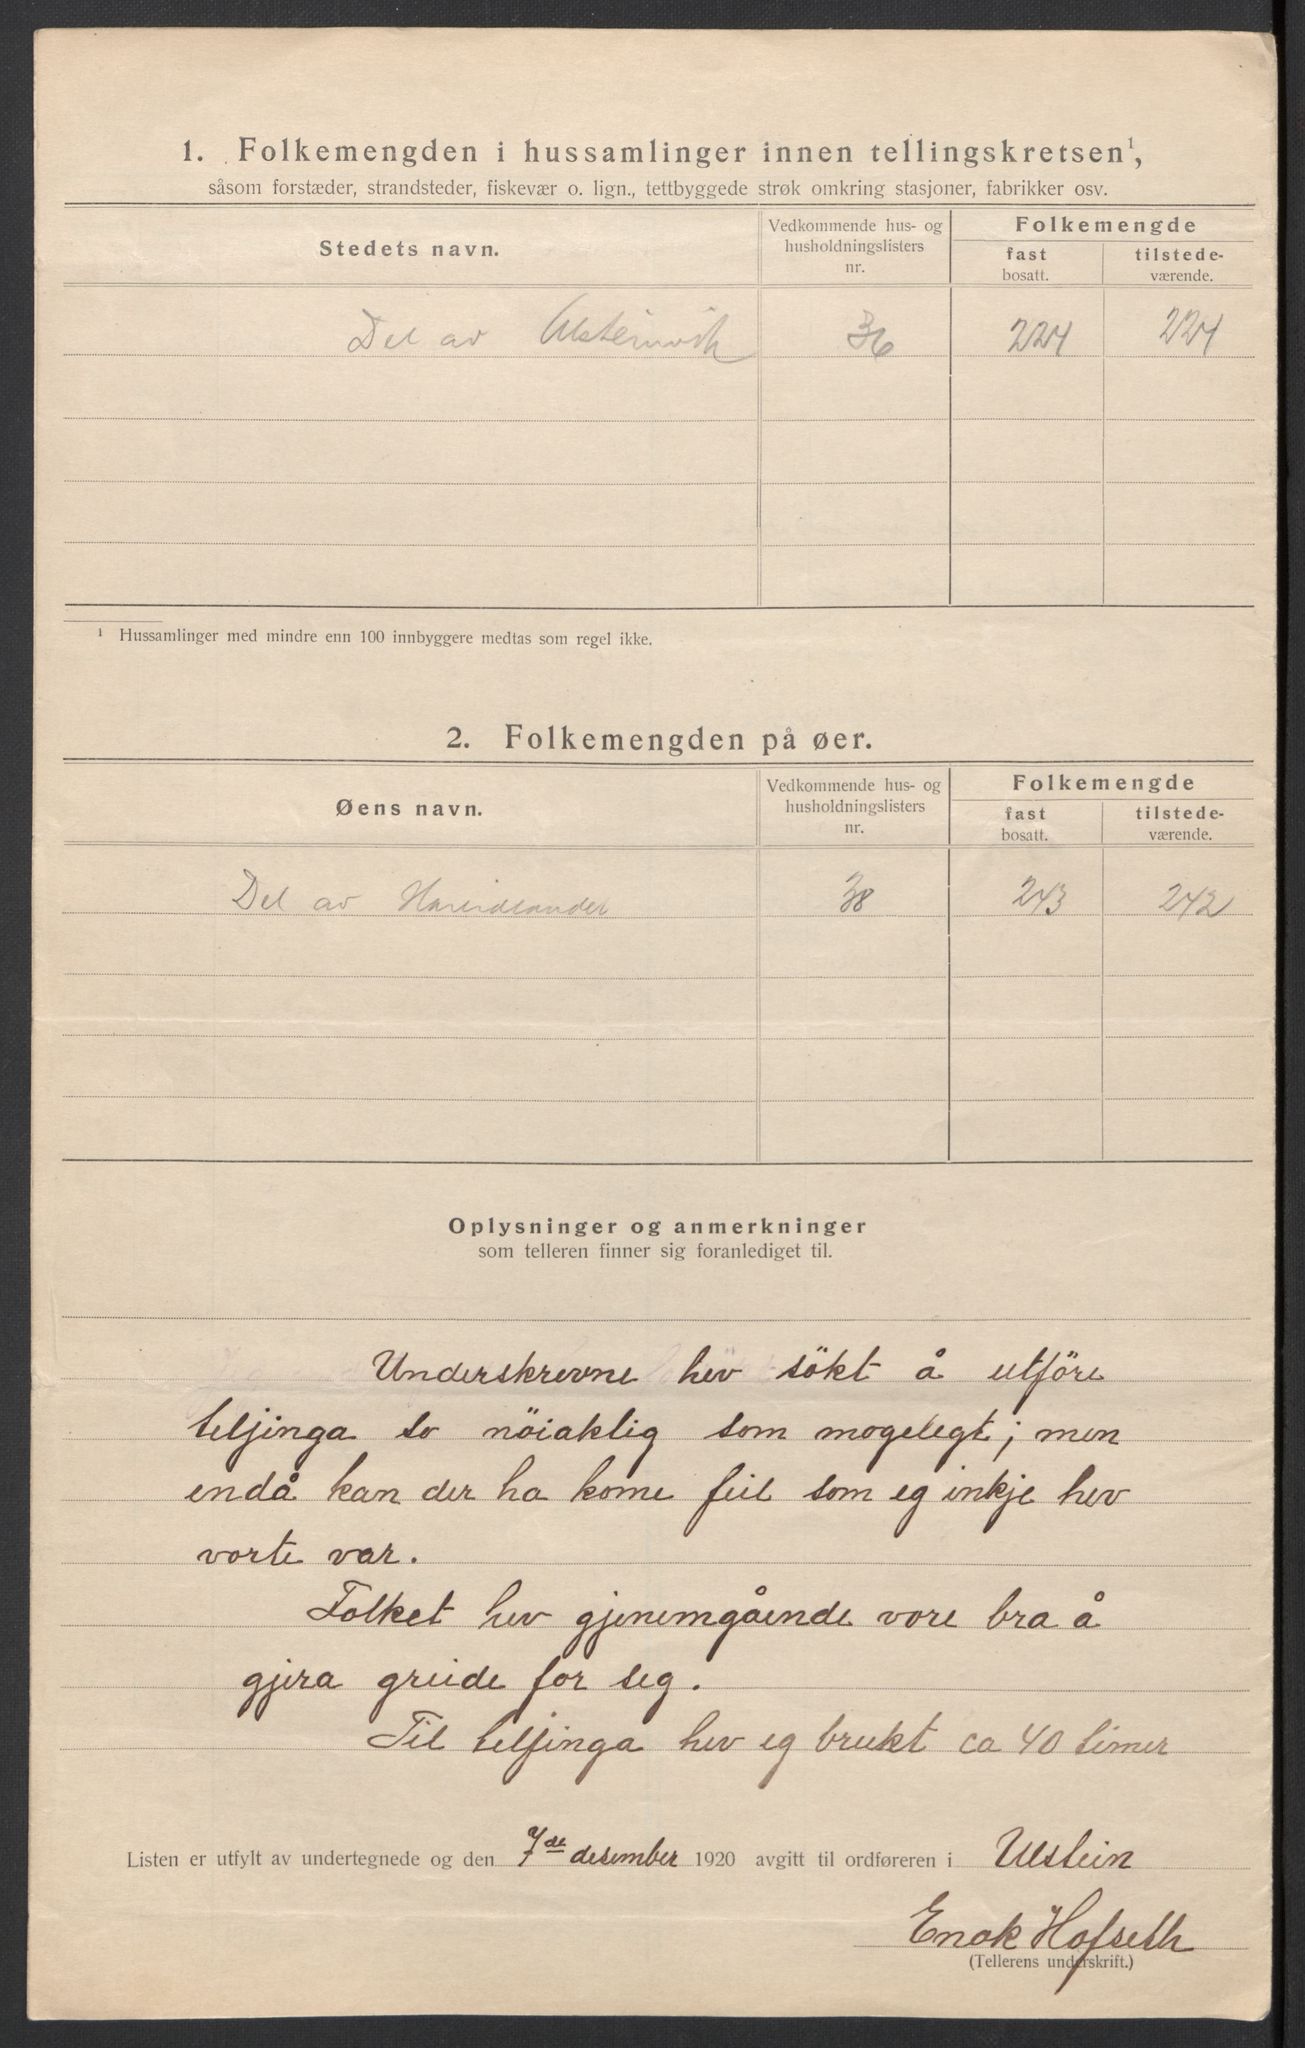 1. Folkemengden i hussamlinger innen tellingskretsen¹,
såsom forstæder, strandsteder, fiskevær o. lign., tettbyggede strøk omkring stasjoner, fabrikker osv.
Stedets navn.
Vedkommende hus- og
husholdningslisters
nr.
Folkemengde
fast
bosatt.
tilstede-
værende.
Del av Ulsteinvik 36 224 224
¹ Hussamlinger med mindre enn 100 innbyggere medtas som regel ikke.
2. Folkemengden på øer.
Øens navn.
Vedkommende hus- og
husholdningslisters
nr.
Folkemengde
fast
bosatt.
tilstede-
værende.
Del av Hareidlandet 38 243 242
Oplysninger og anmerkninger
som telleren finner sig foranlediget til.
Underskrevne hev sökt å utföre
teljinga so nöiaktig som mogelegt; men
endå kan der ha kome feil som eg inkje hev
vorte var.
Folket hev gjenemgående vore bra å
gjera greide for seg.
Til teljinga hev eg brukt ca 40 timer
Listen er utfylt av undertegnede og den 7de desember 1920 avgitt til ordføreren i Ulstein
Enok Hofseth
(Tellerens underskrift.)